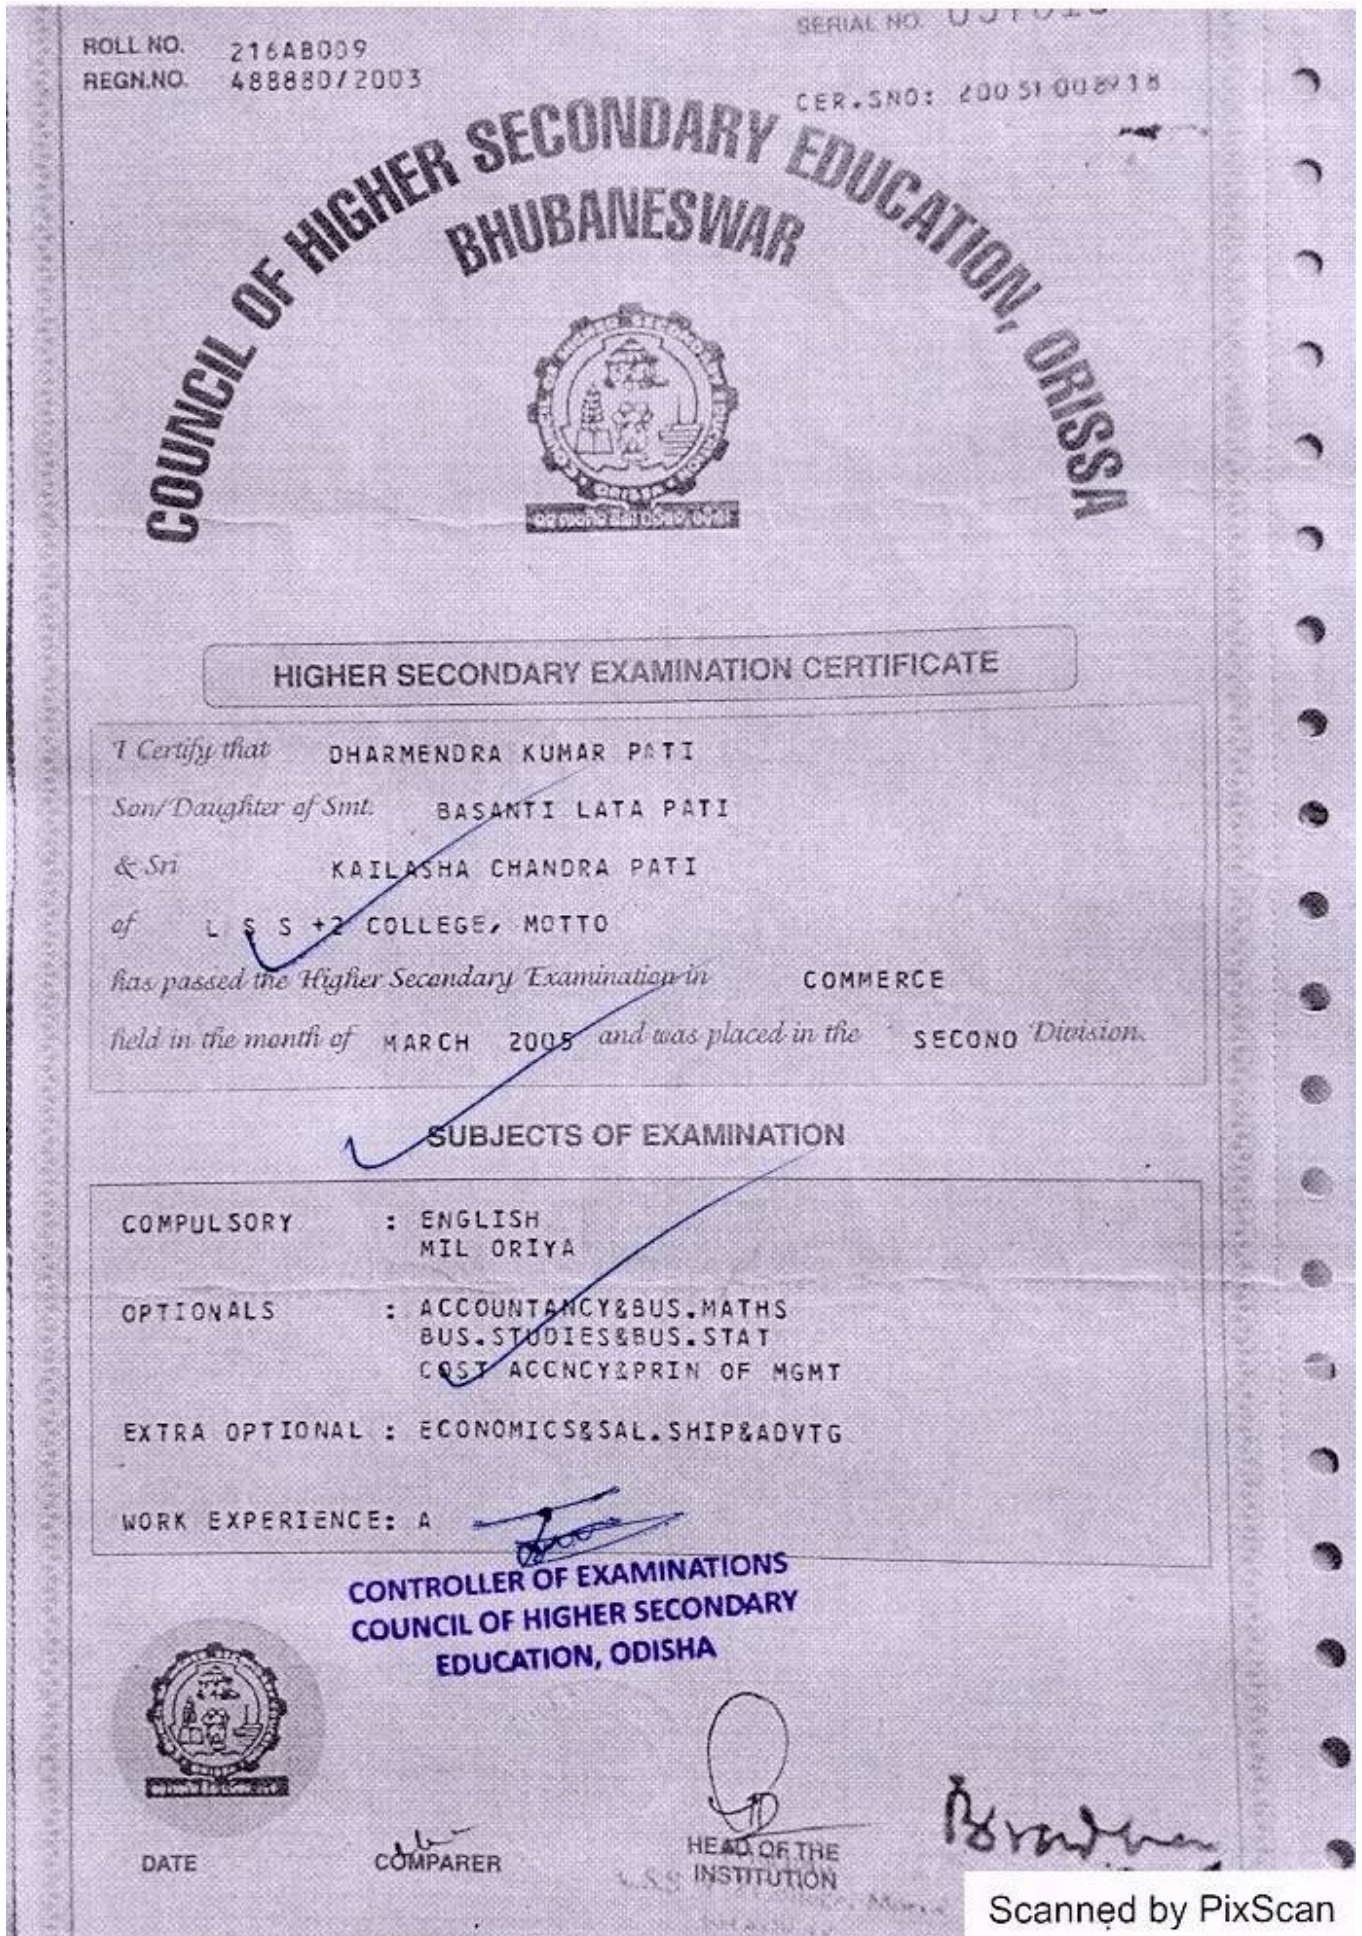 SERIAL NO.
ROLL NO. 216AB009
REGN.NO. 488880/2003
CER.SNO: 20051008918
COUNCIL OF HIGHER SECONDARY EDUCATION, ORISSA
BHUBANESWAR
HIGHER SECONDARY EXAMINATION CERTIFICATE
I Certify that DHARMENDRA KUMAR PATI
Son/Daughter of Smt. BASANTI LATA PATI
& Sri KAILASHA CHANDRA PATI
of L S S +2 COLLEGE, MOTTO
has passed the Higher Secondary Examination in COMMERCE
held in the month of MARCH 2005 and was placed in the SECOND Division.
SUBJECTS OF EXAMINATION
COMPULSORY : ENGLISH
MIL ORIYA
OPTIONALS : ACCOUNTANCY&BUS.MATHS
BUS.STUDIES&BUS.STAT
COST ACCNCY&PRIN OF MGMT
EXTRA OPTIONAL : ECONOMICS&SAL.SHIP&ADVTG
WORK EXPERIENCE: A
CONTROLLER OF EXAMINATIONS
COUNCIL OF HIGHER SECONDARY
EDUCATION, ODISHA
DATE
COMPARER
HEAD OF THE
INSTITUTION
Scanned by PixScan